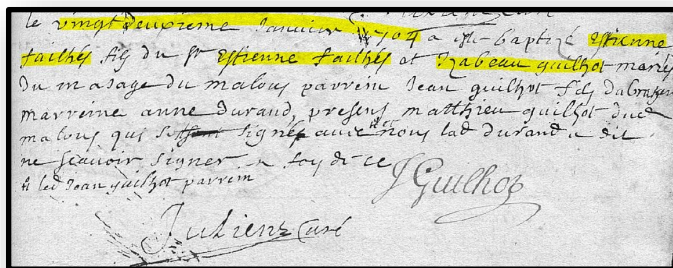 le vingt deuxieme Janvier 1704 a este baptizé Estienne
failhés fils du Sr Estienne failhés et Izabeau guilhot mariés
du masage du malous parrein Jean guilhot fils
marreine anne Durand, presens matthieu guilhot dud
malous qui signés avec nous lad durand a dit
ne scavoir signer en foy de ce
et led Jean guilhot parrein
J Guilhot
Julien Curé